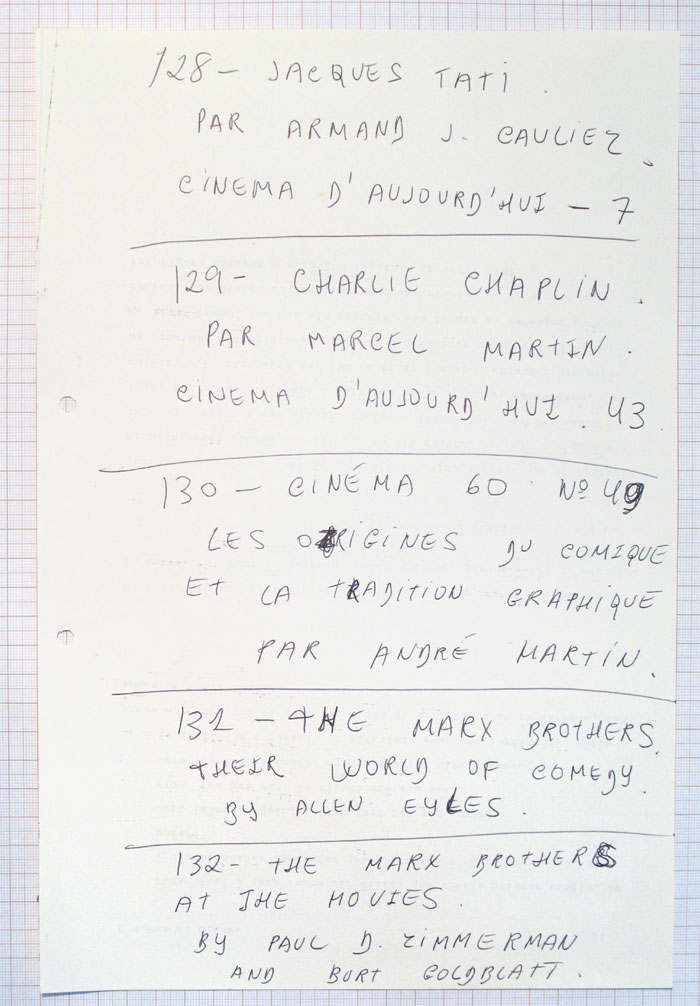 128 - JACQUES TATI .
PAR ARMAND J. CAULIEZ .
CINEMA D'AUJOURD'HUI - 7
129 - CHARLIE CHAPLIN .
PAR MARCEL MARTIN .
CINEMA D'AUJOURD'HUI . 43
130 - CINÉMA 60 Nº 49
LES ORIGINES DU COMIQUE
ET LA TRADITION GRAPHIQUE
PAR ANDRÉ MARTIN .
131 - THE MARX BROTHERS
THEIR WORLD OF COMEDY .
BY ALLEN EYLES .
132 - THE MARX BROTHERS
AT THE MOVIES .
BY PAUL D. ZIMMERMAN
AND BURT GOLDBLATT .